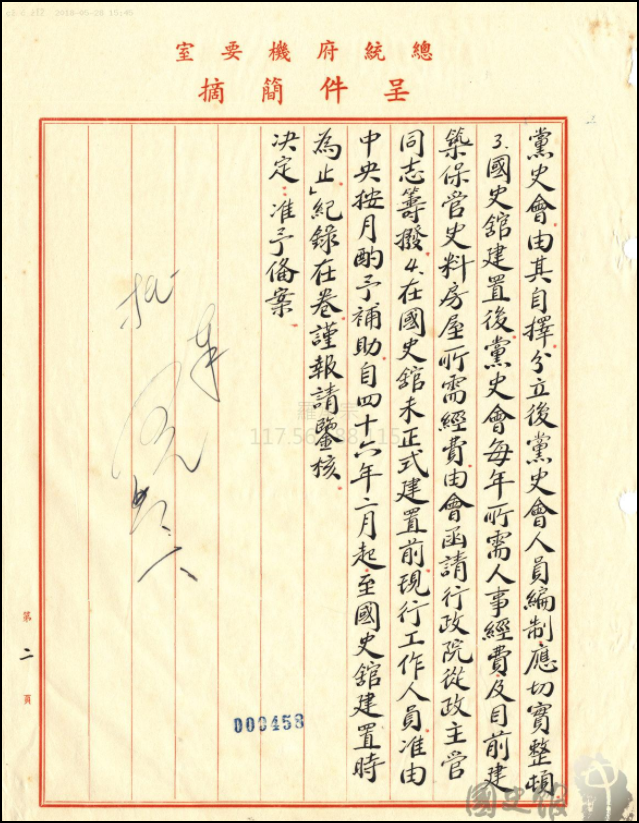 總統府機要室
呈件簡摘
黨史會由其自擇分立後黨史會人員編制應切實整頓
3.國史館建置後黨史會每年所需人事經費及目前建
築保管史料房屋所需經費由會函請行政院從政主管
同志籌撥4.在國史館未正式建置前現行工作人員准由
中央按月酌予補助自四十六年二月起至國史館建置時
為止」紀錄在卷謹報請鑒核
決定:准予備案
第二頁
000458
國史館